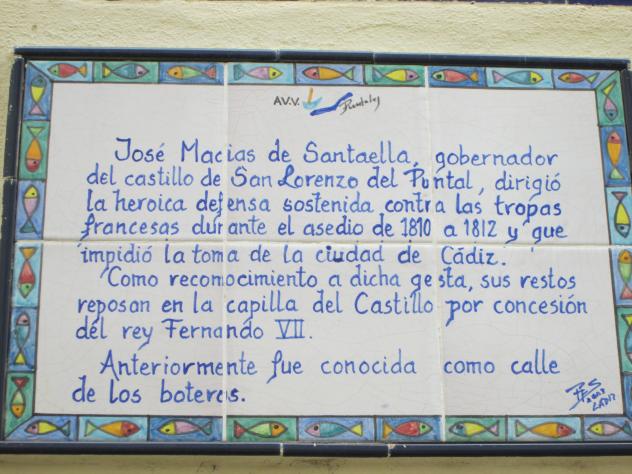 AV.V. Puntales
José Macias de Santaella, gobernador
del castillo de San Lorenzo del Puntal, dirigió
la heroica defensa sostenida contra las tropas
francesas durante el asedio de 1810 a 1812 y que
impidió la toma de la ciudad de Cádiz.
Como reconocimiento a dicha gesta, sus restos
reposan en la capilla del Castillo por concesión
del rey Fernando VII.
Anteriormente fue conocida como calle
de los boteros.
CADIZ